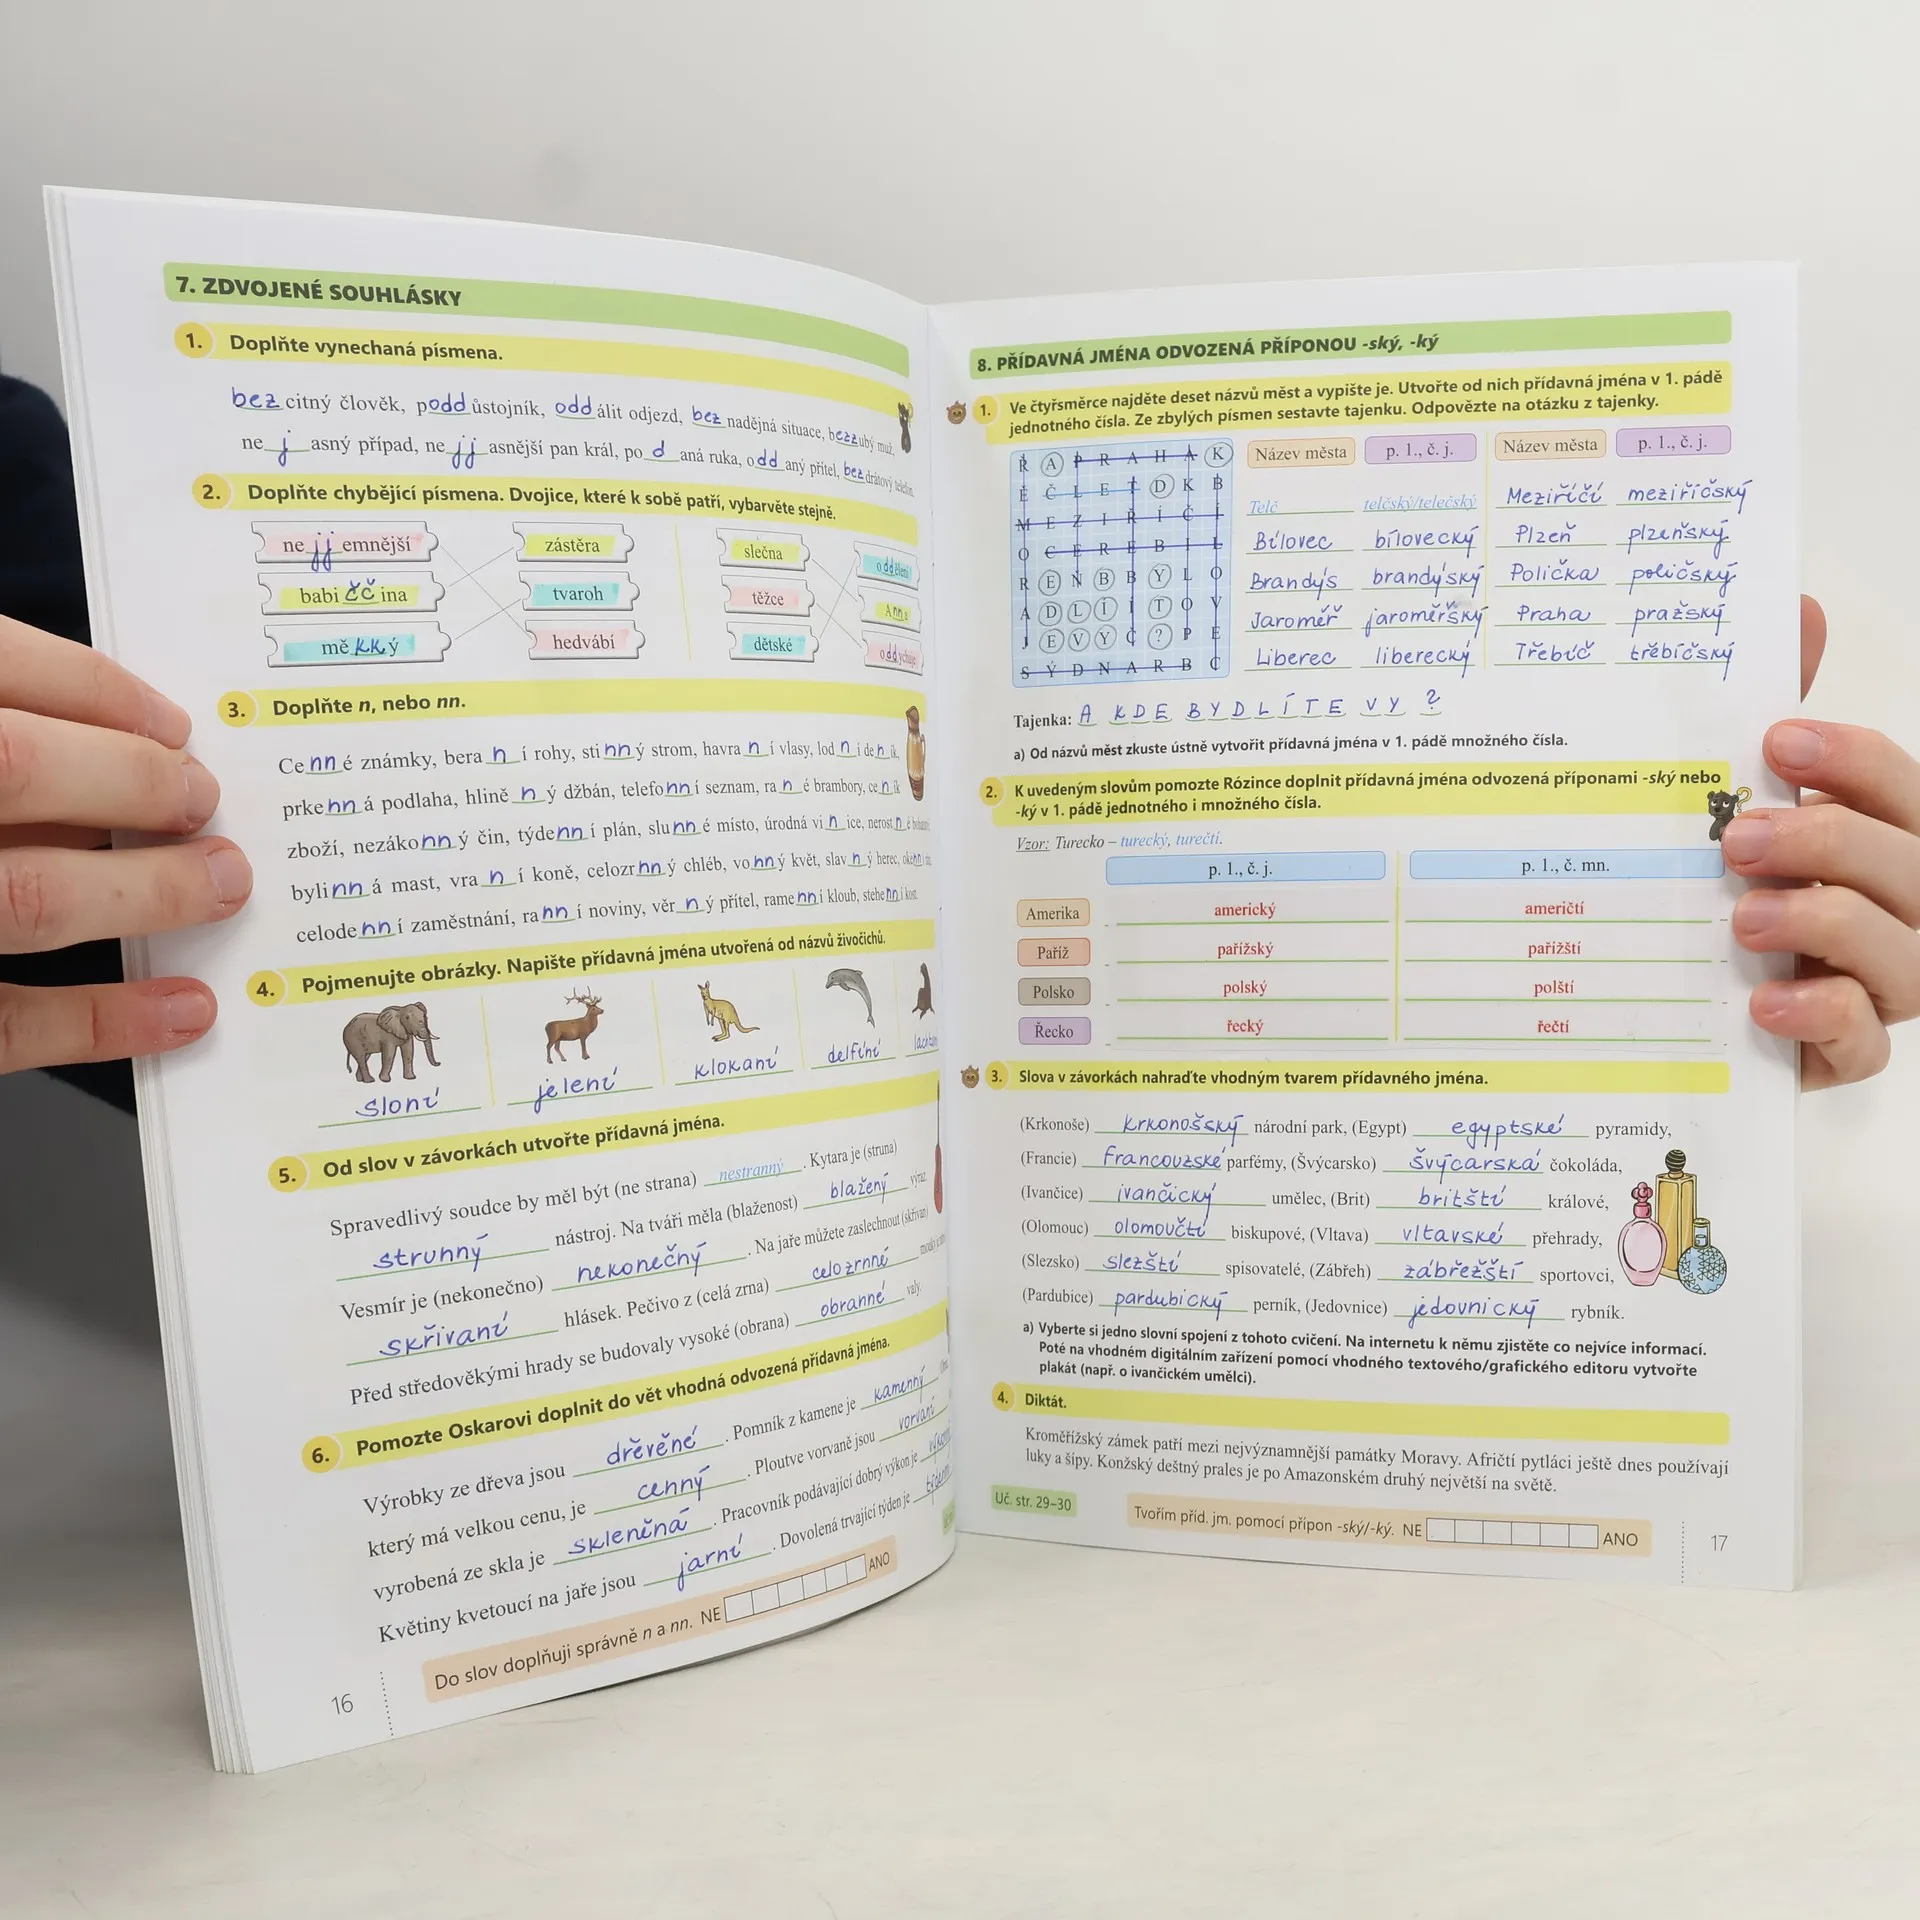 7. ZDVOJENÉ SOUHLÁSKY
1. Doplňte vynechaná písmena.
bezcitný člověk, poddůstojník, oddálit odjezd, beznadějná situace, bezzubý muž,
nejasný případ, nejjasnější pan král, podaná ruka, oddaný přítel, bezdrátový telefon.
2. Doplňte chybějící písmena. Dvojice, které k sobě patří, vybarvěte stejně.
nejjemnější zástěra slečna oddělení
babiččina tvaroh těžce Anna
měkký hedvábí dětské oddychuje
3. Doplňte n, nebo nn.
Cenné známky, beraní rohy, stinný strom, havraní vlasy, lodní deník,
prkenná podlaha, hliněný džbán, telefonní seznam, rané brambory, ceník
zboží, nezákonný čin, týdenní plán, slunné místo, úrodná vinice, nerostné
bylinná mast, vraní koně, celozrnný chléb, vonný květ, slavný herec,
celodenní zaměstnání, ranní noviny, věrný přítel, ramenní kloub, stehenní kost.
4. Pojmenujte obrázky. Napište přídavná jména utvořená od názvů živočichů.
sloní jelení klokaní delfíní
5. Od slov v závorkách utvořte přídavná jména.
Spravedlivý soudce by měl být (ne strana) nestranný. Kytara je (struna)
strunný nástroj. Na tváři měla (blaženost) blažený výraz.
Vesmír je (nekonečno) nekonečný. Na jaře můžete zaslechnout (skřivan)
skřivaní hlásek. Pečivo z (celá zrna) celozrnné
Před středověkými hrady se budovaly vysoké (obrana) obranné valy.
6. Pomozte Oskarovi doplnit do vět vhodná odvozená přídavná jména.
Výrobky ze dřeva jsou dřevěné. Pomník z kamene je kamenný.
který má velkou cenu, je cenný. Ploutve vorvaně jsou vorvaní
vyrobená ze skla je skleněná. Pracovník podávající dobrý výkon je
Květiny kvetoucí na jaře jsou jarní. Dovolená trvající týden je
Do slov doplňuji správně n a nn. NE ANO
16
8. PŘÍDAVNÁ JMÉNA ODVOZENÁ PŘÍPONOU -ský, -ký
1. Ve čtyřsměrce najděte deset názvů měst a vypište je. Utvořte od nich přídavná jména v 1. pádě
jednotného čísla. Ze zbylých písmen sestavte tajenku. Odpovězte na otázku z tajenky.
Název města p. 1., č. j. Název města p. 1., č. j.
R A P R A H A K
E Č L E T D K B
M E Z I Ř Í Č Í
O C E R E B I L
R E N B B Y L O
A D L Í I T O V
J E V Y C ? P E
S Ý D N A R B C
Telč telčský/telečský Meziříčí meziříčský
Bílovec bílovecký Plzeň plzeňský
Brandýs brandýský Polička poličský
Jaroměř jaroměřský Praha pražský
Liberec liberecký Třebíč třebíčský
Tajenka: A KDE BYDLÍTE VY ?
a) Od názvů měst zkuste ústně vytvořit přídavná jména v 1. pádě množného čísla.
2. K uvedeným slovům pomozte Rózince doplnit přídavná jména odvozená příponami -ský nebo
-ký v 1. pádě jednotného i množného čísla.
Vzor: Turecko – turecký, turečtí.
p. 1., č. j. p. 1., č. mn.
Amerika americký američtí
Paříž pařížský pařížští
Polsko polský polští
Řecko řecký řečtí
3. Slova v závorkách nahraďte vhodným tvarem přídavného jména.
(Krkonoše) krkonošský národní park, (Egypt) egyptské pyramidy,
(Francie) Francouzské parfémy, (Švýcarsko) švýcarská čokoláda,
(Ivančice) ivančický umělec, (Brit) britští králové,
(Olomouc) olomoučtí biskupové, (Vltava) vltavské přehrady,
(Slezsko) slezští spisovatelé, (Zábřeh) zábřežští sportovci,
(Pardubice) pardubický perník, (Jedovnice) jedovnický rybník.
a) Vyberte si jedno slovní spojení z tohoto cvičení. Na internetu k němu zjistěte co nejvíce informací.
Poté na vhodném digitálním zařízení pomocí vhodného textového/grafického editoru vytvořte
plakát (např. o ivančickém umělci).
4. Diktát.
Kroměřížský zámek patří mezi nejvýznamnější památky Moravy. Afričtí pytláci ještě dnes používají
luky a šípy. Konžský deštný prales je po Amazonském druhý největší na světě.
Uč. str. 29–30
Tvořím příd. jm. pomocí přípon -ský/-ký. NE ANO
17